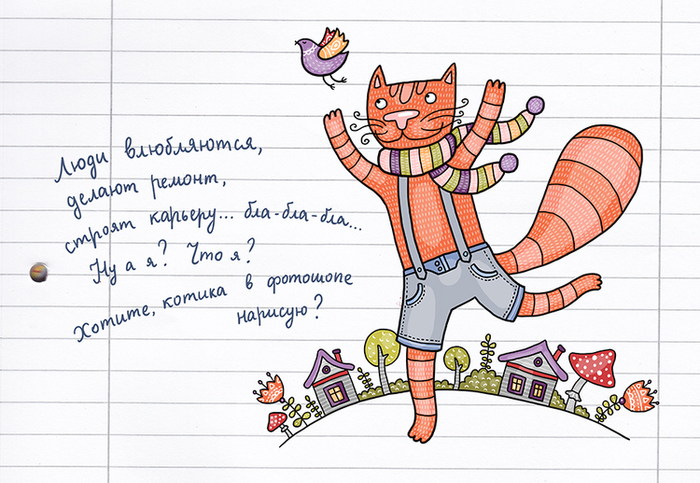 Люди влюбляются,
делают ремонт,
строят карьеру... бла-бла-бла...
Ну а я? Что я?
Хотите, котика в фотошопе
нарисую?